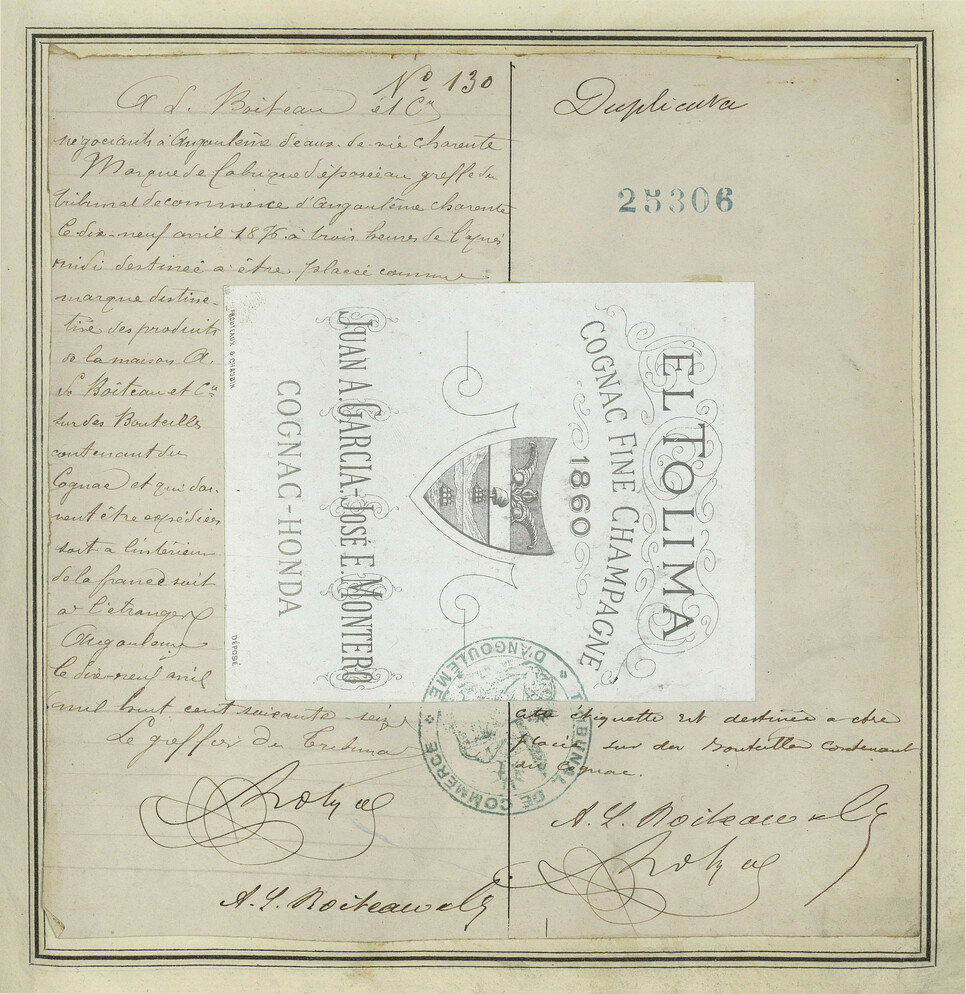 Nº 130
A L. Boiteau et Cie
négociants à Angoulême d'eaux-de-vie charente
Marque de fabrique déposée au greffe du
tribunal de commerce d'Angoulême charente
le dix-neuf avril 1876 à trois heures de l'après
midi destinée a être placée comme
marque distinc-
tive des produits
de la maison A.
L. Boiteau et Cie
sur des Bouteilles
contenant du
Cognac et qui doi-
vent être expédiées
soit a l'intérieur
de la france soit
a l'étranger
Angoulême
le dix-neuf avril
mil huit cent soixante-seize
Le greffier du Tribunal
A. L. Boiteau & Cie
Duplicata
25306
EL TOLIMA
COGNAC FINE CHAMPAGNE
1860
JUAN A. GARCIA-JOSÉ E. MONTERO
COGNAC-HONDA
PROUTEAUX & CHAMBIN
DÉPOSÉ
TRIBUNAL DE COMMERCE
D'ANGOULÊME
cette étiquette est destinée a etre
placée sur des bouteilles contenant
du Cognac.
A. L. Boiteau & Cie